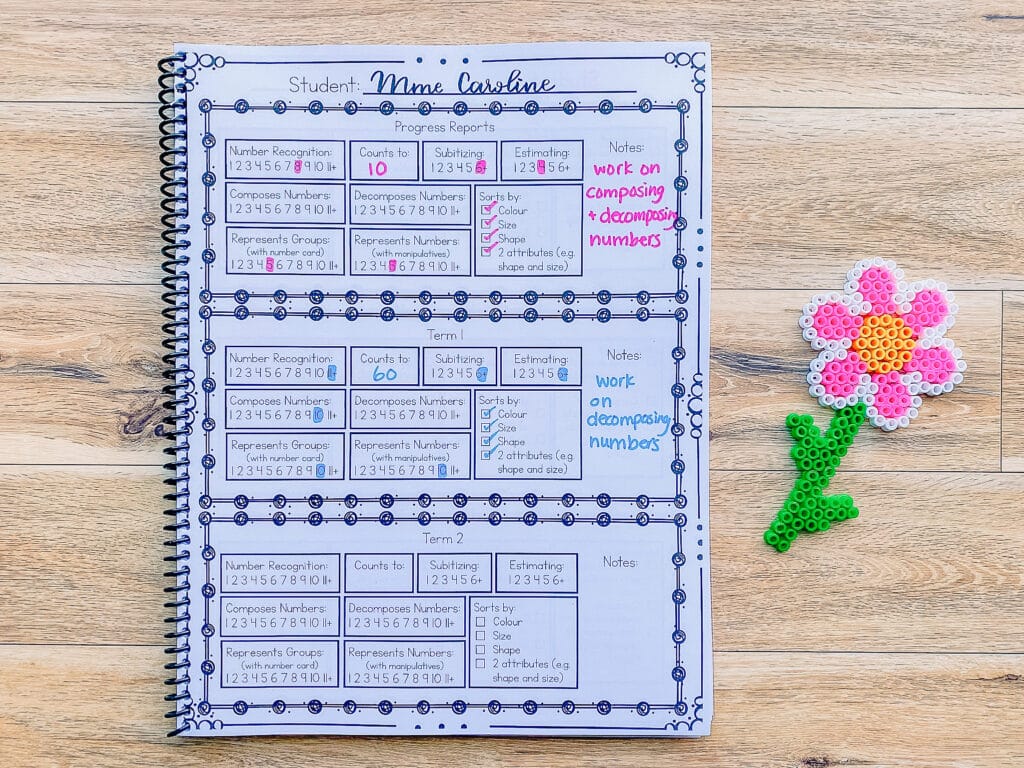 Student: Mme Caroline
Progress Reports
Number Recognition:
1 2 3 4 5 6 7 8 9 10 11+
Counts to:
10
Subitizing:
1 2 3 4 5 6+
Estimating:
1 2 3 4 5 6+
Notes:
work on
composing
+ decomposing
numbers
Composes Numbers:
1 2 3 4 5 6 7 8 9 10 11+
Decomposes Numbers:
1 2 3 4 5 6 7 8 9 10 11+
Sorts by:
Colour
Size
Shape
2 attributes (e.g.
shape and size)
Represents Groups:
(with number card)
1 2 3 4 5 6 7 8 9 10 11+
Represents Numbers:
(with manipulatives)
1 2 3 4 5 6 7 8 9 10 11+
Term 1
Number Recognition:
1 2 3 4 5 6 7 8 9 10 11+
Counts to:
60
Subitizing:
1 2 3 4 5 6+
Estimating:
1 2 3 4 5 6+
Notes:
work
on
decomposing
numbers
Composes Numbers:
1 2 3 4 5 6 7 8 9 10 11+
Decomposes Numbers:
1 2 3 4 5 6 7 8 9 10 11+
Sorts by:
Colour
Size
Shape
2 attributes (e.g.
shape and size)
Represents Groups:
(with number card)
1 2 3 4 5 6 7 8 9 10 11+
Represents Numbers:
(with manipulatives)
1 2 3 4 5 6 7 8 9 10 11+
Term 2
Number Recognition:
1 2 3 4 5 6 7 8 9 10 11+
Counts to:
Subitizing:
1 2 3 4 5 6+
Estimating:
1 2 3 4 5 6+
Notes:
Composes Numbers:
1 2 3 4 5 6 7 8 9 10 11+
Decomposes Numbers:
1 2 3 4 5 6 7 8 9 10 11+
Sorts by:
Colour
Size
Shape
2 attributes (e.g.
shape and size)
Represents Groups:
(with number card)
1 2 3 4 5 6 7 8 9 10 11+
Represents Numbers:
(with manipulatives)
1 2 3 4 5 6 7 8 9 10 11+